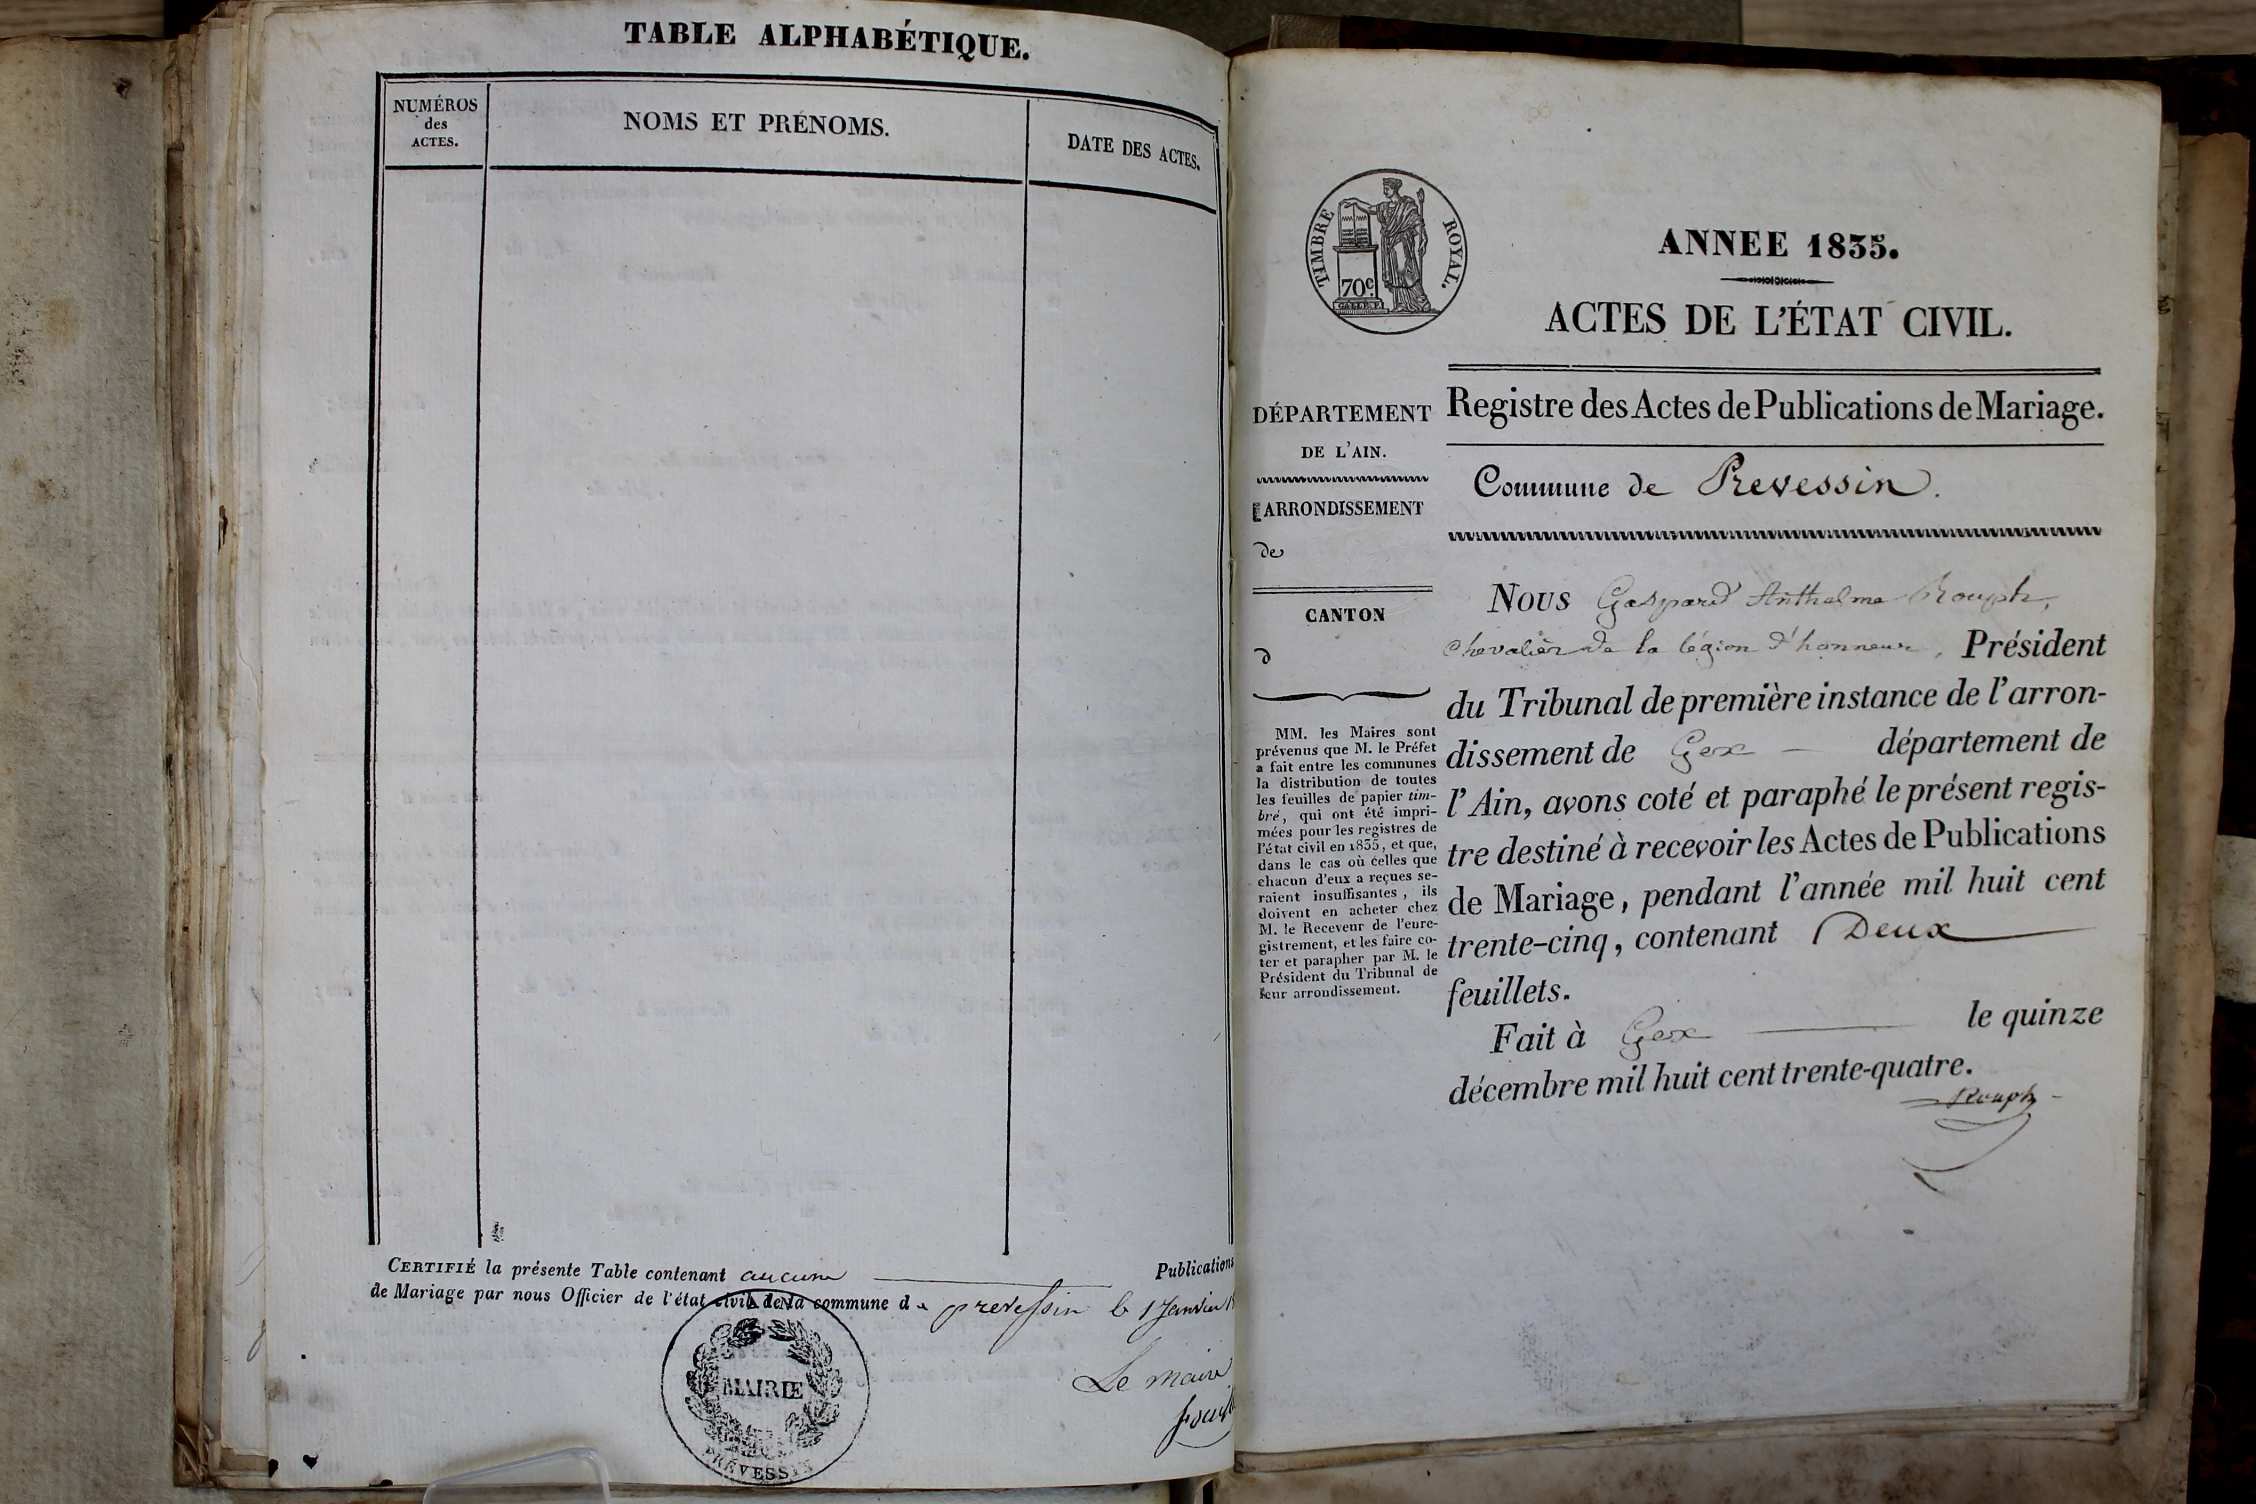 TABLE ALPHABÉTIQUE.
NUMÉROS
des
ACTES.
NOMS ET PRÉNOMS.
DATE DES ACTES.
CERTIFIÉ la présente Table contenant aucune Publications
de Mariage par nous Officier de l'état civil de la commune de prevessin le 1 Janvier
Le maire
AIN
MAIRIE
PRÉVESSIN
TIMBRE ROYAL.
70c
ANNEE 1835.
ACTES DE L'ÉTAT CIVIL.
DÉPARTEMENT
DE L'AIN.
ARRONDISSEMENT
de
CANTON
d
MM. les Maires sont
prévenus que M. le Préfet
a fait entre les communes
la distribution de toutes
les feuilles de papier tim-
bré, qui ont été impri-
mées pour les registres de
l'état civil en 1835, et que,
dans le cas où celles que
chacun d'eux a reçues se-
raient insuffisantes, ils
doivent en acheter chez
M. le Receveur de l'enre-
gistrement, et les faire co-
ter et parapher par M. le
Président du Tribunal de
leur arrondissement.
Registre des Actes de Publications de Mariage.
Commune de Prevessin.
Nous Gaspard Anthelme Rouph,
chevalier de la légion d'honneur, Président
du Tribunal de première instance de l'arron-
dissement de Gex département de
l'Ain, avons coté et paraphé le présent regis-
tre destiné à recevoir les Actes de Publications
de Mariage, pendant l'année mil huit cent
trente-cinq, contenant Deux
feuillets.
Fait à Gex le quinze
décembre mil huit cent trente-quatre.
Rouph